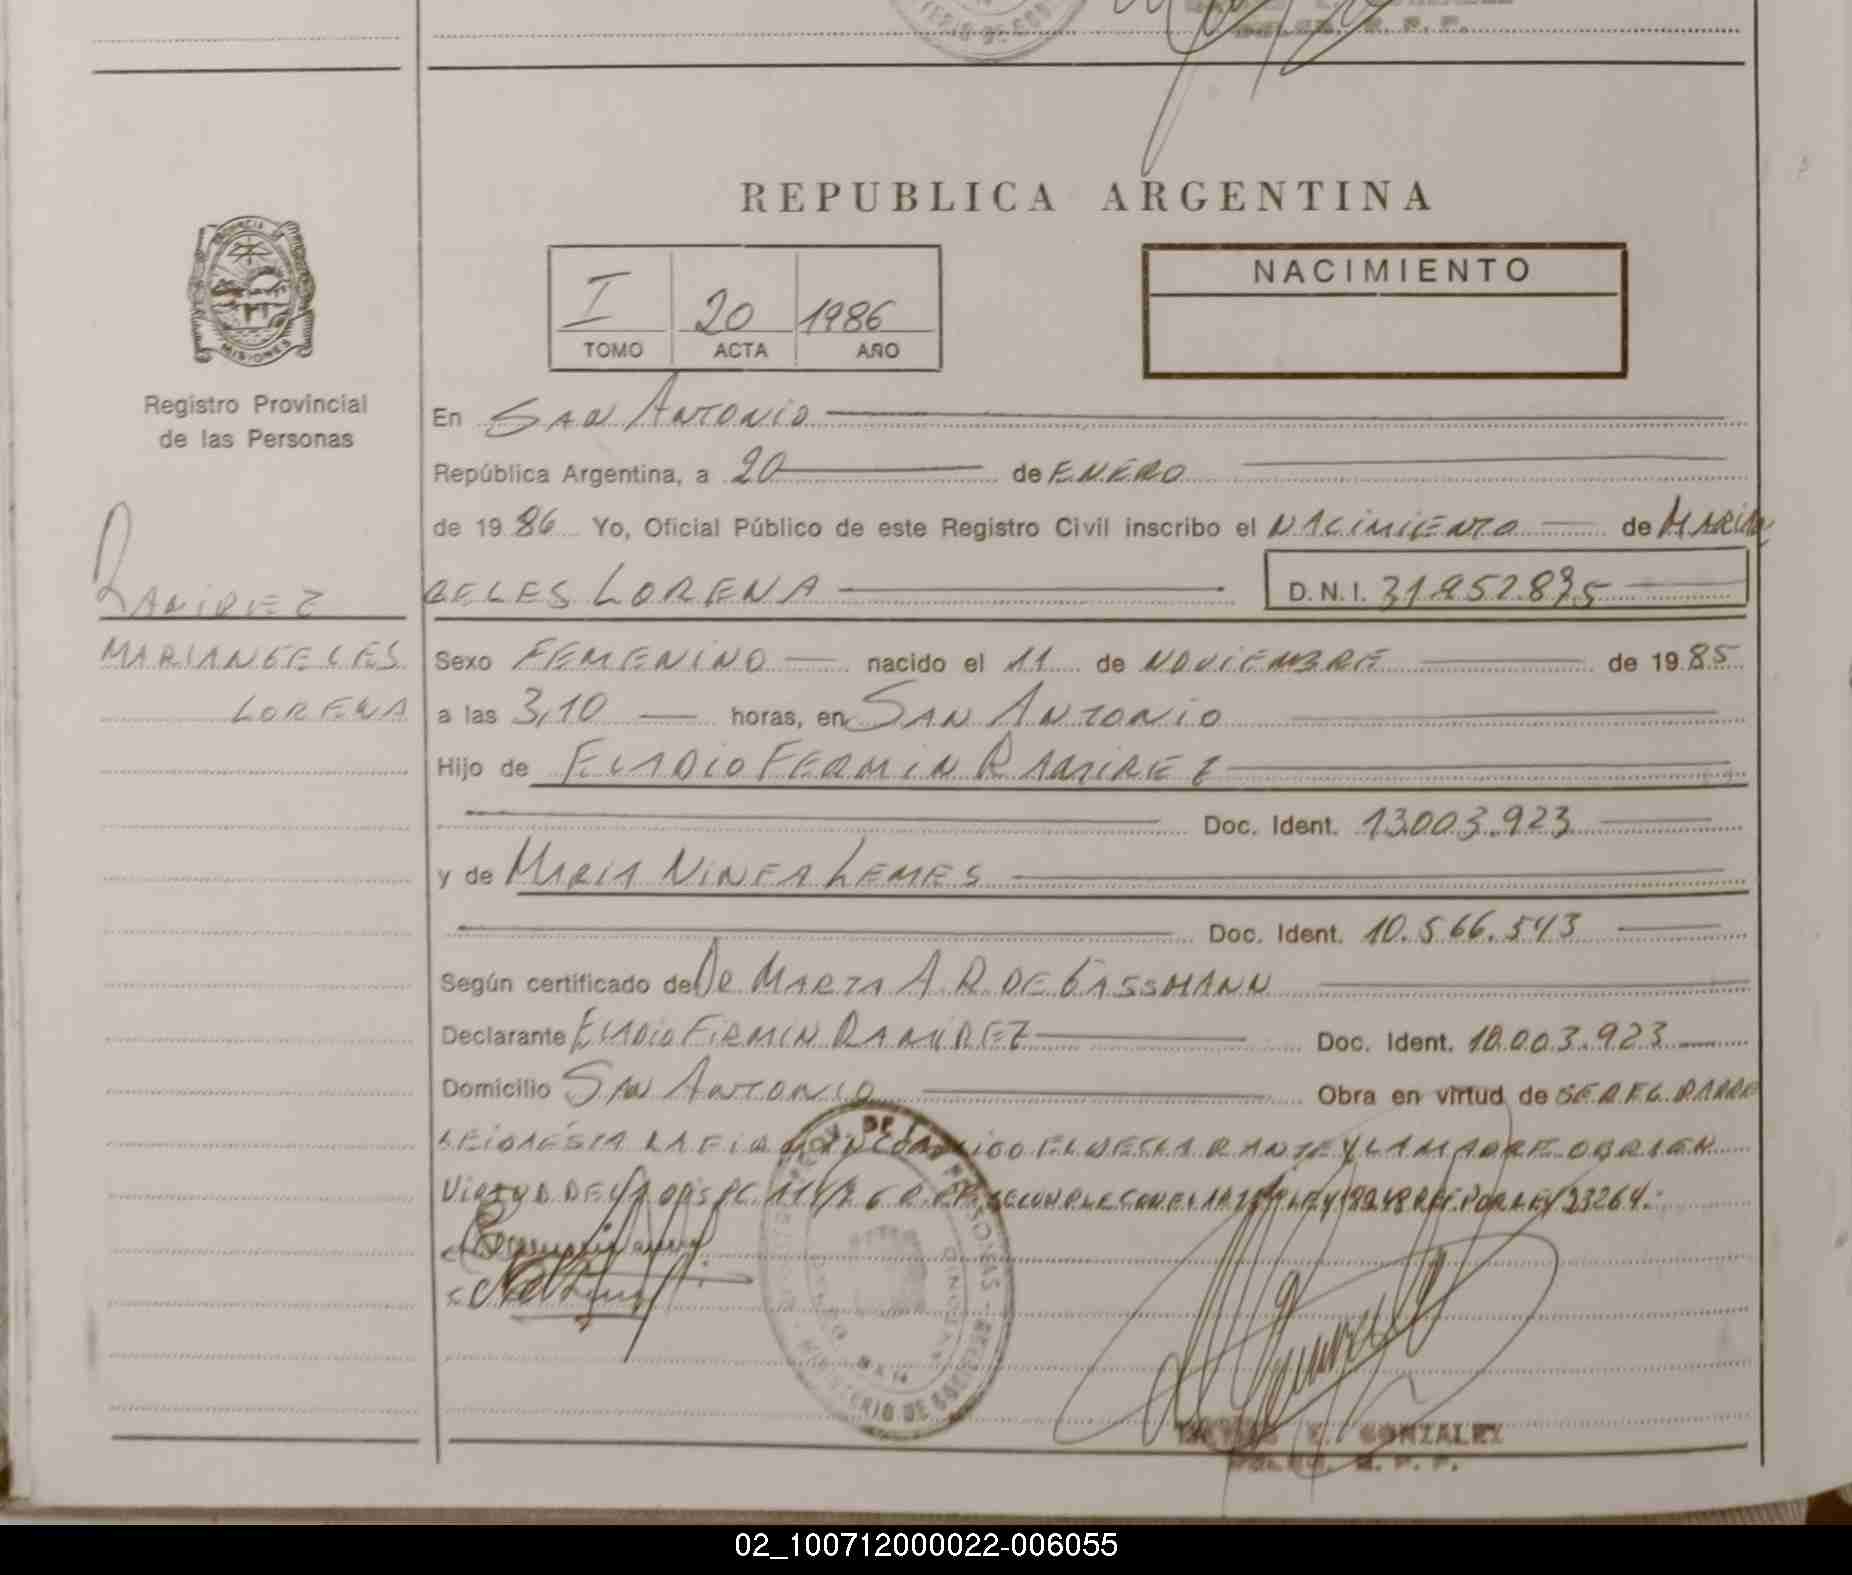 REPUBLICA ARGENTINA
PROVINCIA DE
MISIONES
Registro Provincial
de las Personas
I 20 1986
TOMO ACTA AÑO
NACIMIENTO
En SAN ANTONIO
República Argentina, a 20 de ENERO
de 1986 Yo, Oficial Público de este Registro Civil inscribo el NACIMIENTO de MARIAN
GELES LORENA D.N.I.
RAMIREZ
MARIANGELES
LORENA
Sexo FEMENINO nacido el 11 de NOVIEMBRE de 1985
a las 3,10 horas, en SAN ANTONIO
Hijo de ELADIO FERMIN RAMIREZ
Doc. Ident. 13.003.923
y de MARIA NINFA LEMES
Doc. Ident. 10.566.543
Según certificado de Dr MARTA A.R. DE GASSMANN
Declarante ELADIO FIRMIN RAMIREZ Doc. Ident. 10.003.923
Domicilio SAN ANTONIO Obra en virtud de SER EL PADRE
LEIDA ESTA LA FIRMAN CONMIGO EL DECLARANTE Y LA MADRE OBRIGN
VIRTUD DE LA DISP. R.P.P. SE CUMPLE CON EL ART LEY 18248 REF. POR LEY 23264.
GONZALEZ
R. P. P.
02_100712000022-006055